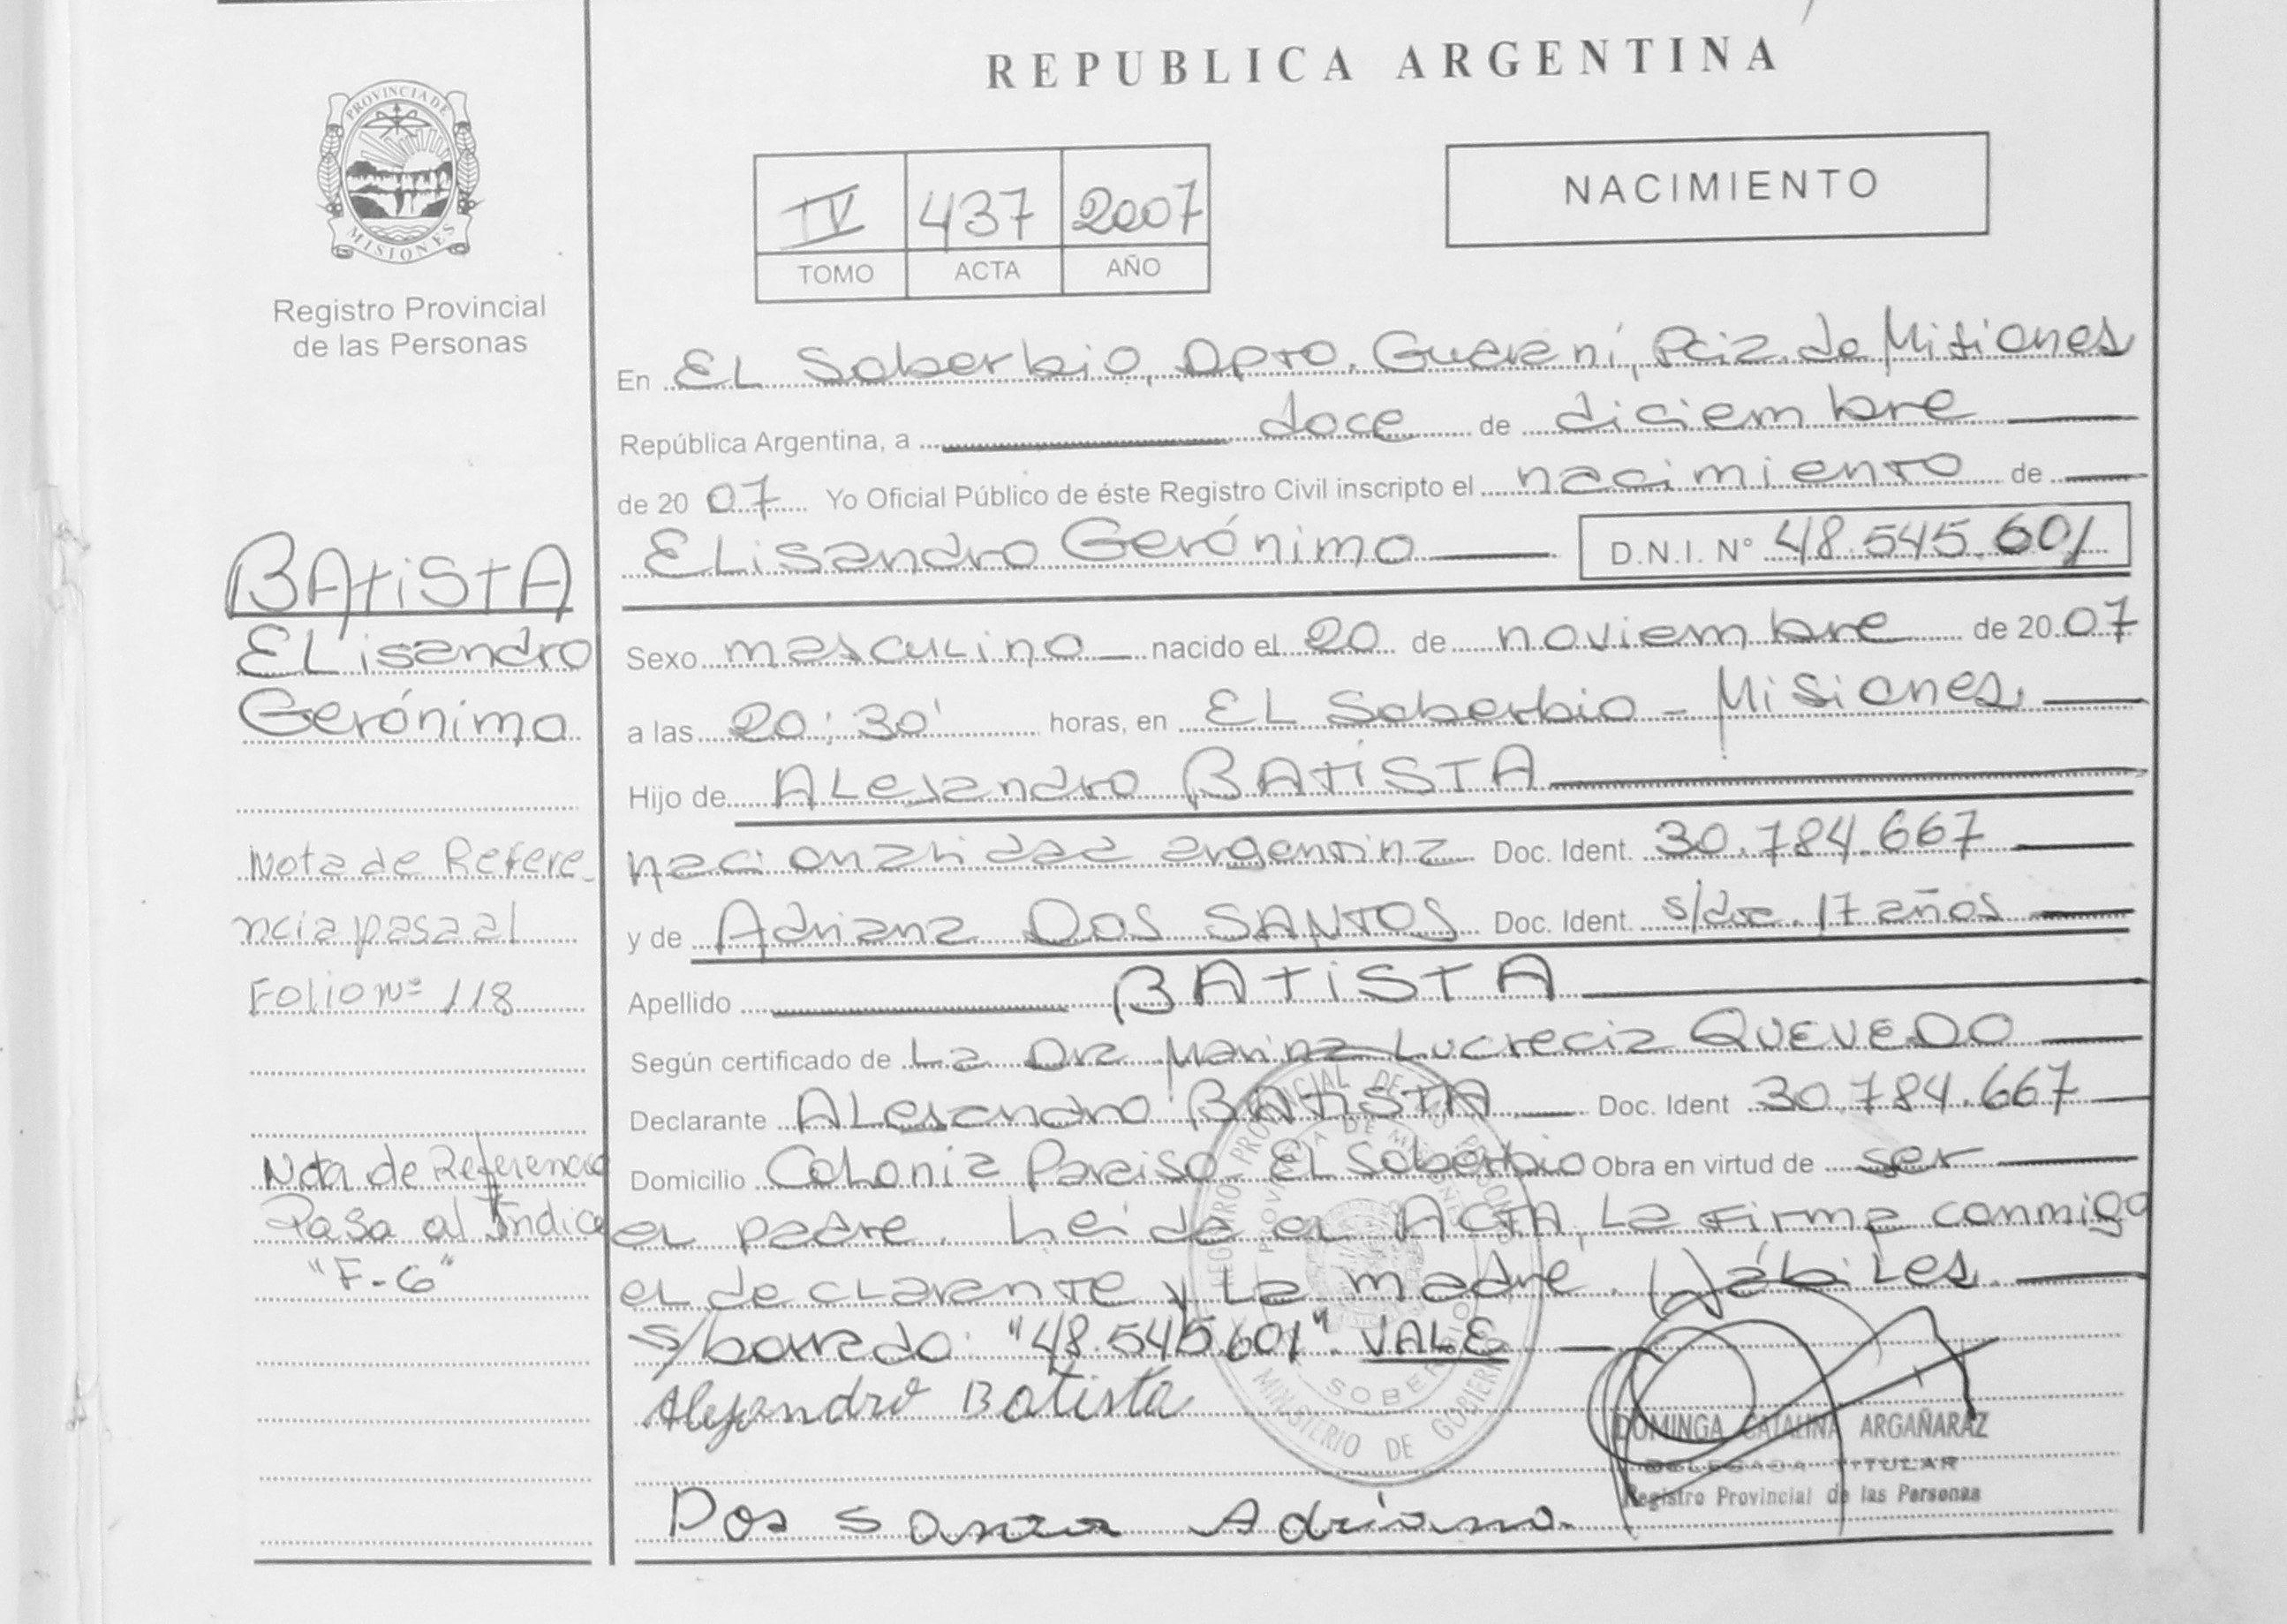 REPUBLICA ARGENTINA
PROVINCIA DE
MISIONES
Registro Provincial
de las Personas
IV 437 2007
TOMO ACTA AÑO
NACIMIENTO
En EL Soberbio, Dpto. Guaraní, Pcia. de Misiones
República Argentina, a doce de diciembre
de 20 07 Yo Oficial Público de éste Registro Civil inscripto el nacimiento de
ELisandro Gerónimo D.N.I. N° 48.545.601
Sexo masculino nacido el 20 de noviembre de 20 07
a las 20:30' horas, en EL Soberbio - Misiones
Hijo de ALejandro BATISTA
nacionalidad argentina Doc. Ident. 30.784.667
y de Adriana DOS SANTOS Doc. Ident. s/doc. 17 años
Apellido BATISTA
Según certificado de La Dra Marina Lucrecia QUEVEDO
Declarante ALejandro BATISTA Doc. Ident 30.784.667
Domicilio Colonia Paraiso - EL Soberbio Obra en virtud de ser
el padre. Leida el ACTA, La firma conmigo
el declarante y La madre. Hábiles.
s/borrado: "48.545.601". VALE
Alejandro Batista
Dos Adriana
BATISTA
ELisandro
Gerónimo
Nota de Refere-
ncia pasa al
Folio Nº 118
Nota de Referencia
Pasa al Indice
"F-6"
REGISTRO PROVINCIAL DE
PROVINCIA DE MISIONES
SOBERBIO
MINISTERIO DE GOBIERNO
DOMINGA CATALINA ARGAÑARAZ
DELEGADA TITULAR
Registro Provincial de las Personas